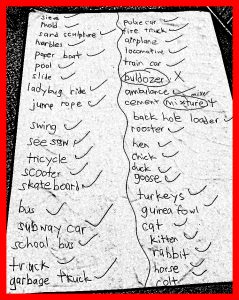 sieve
mold
sand sculpture
marbles
paper boat
pool
slide
ladybug ride
jump rope
swing
see saw
tricycle
scooter
skateboard
bus
subway car
school bus
truck
garbage truck
police car
fire truck
airplane
locomotive
train car
bulldozer X
ambulance
mixer
cement mixture X
back hoe loader
rooster
hen
chick
duck
goose
turkeys
guinea fowl
cat
kitten
rabbit
horse
colt